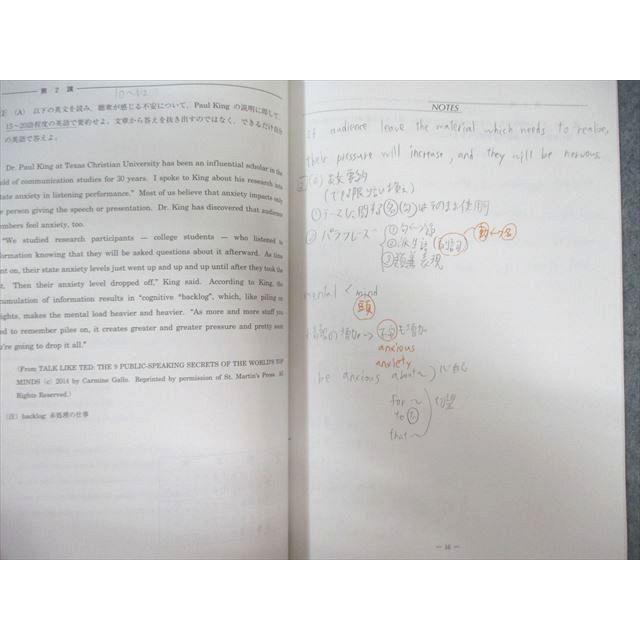 第 2 講
10〜12
(A) 以下の英文を読み、聴衆が感じる不安について、Paul King の説明に即して、
15〜20語程度の英語で要約せよ。文章から答えを抜き出すのではなく、できるだけ自分
の英語で答えよ。
Dr. Paul King at Texas Christian University has been an influential scholar in the
of communication studies for 30 years. I spoke to King about his research into
"state anxiety in listening performance." Most of us believe that anxiety impacts only
person giving the speech or presentation. Dr. King has discovered that audience
members feel anxiety, too.
"We studied research participants — college students — who listened to
information knowing that they will be asked questions about it afterward. As time
went on, their state anxiety levels just went up and up and up until after they took the
Then their anxiety level dropped off," King said. According to King, the
accumulation of information results in "cognitive "backlog", which, like piling on
weights, makes the mental load heavier and heavier. "As more and more stuff you
need to remember piles on, it creates greater and greater pressure and pretty soon
you're going to drop it all."
(From TALK LIKE TED: THE 9 PUBLIC-SPEAKING SECRETS OF THE WORLD'S TOP
MINDS (c) 2014 by Carmine Gallo. Reprinted by permission of St. Martin's Press. All
Rights Reserved.)
(注) backlog: 未処理の仕事
NOTES
If audience leave the material which needs to realize,
their pressure will increase, and they will be nervous.
(A) 英文要約
(できる限り言い換え)
① テーマに関する(名)(句)はそのまま使用
② パラフレーズ ① 句⇔節
② 派生語 (品詞) 動⇔名
③ 類義表現
mental < mind
頭
情報の増加→ 不安も増加
anxious
anxiety
be anxious about〜 心配
for 〜 切望
to
that〜
— 16 —